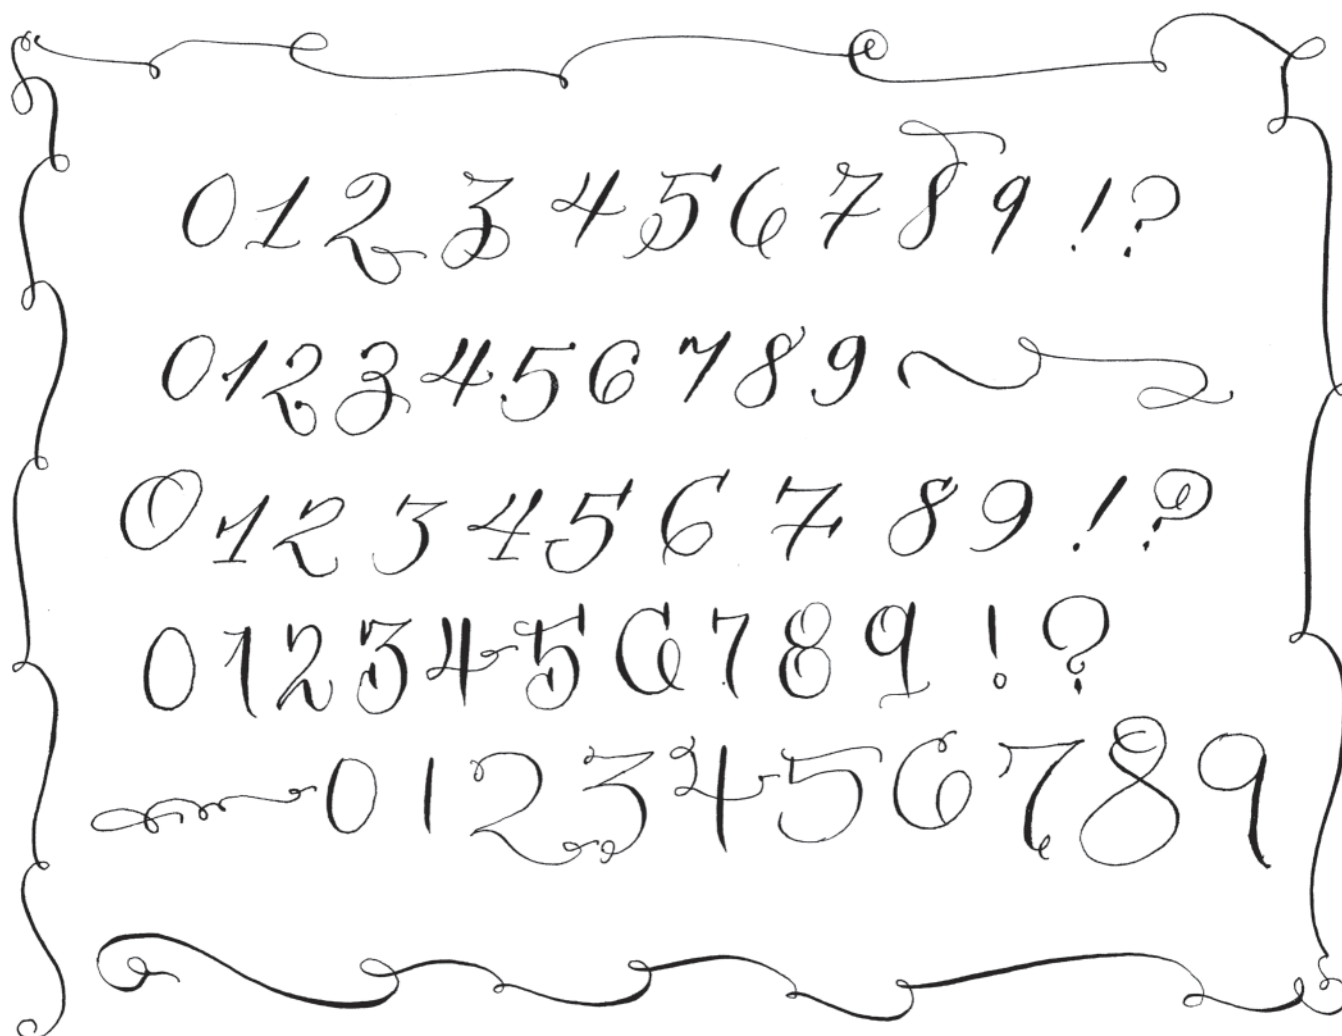 0 1 2 3 4 5 6 7 8 9 ! ?
0 1 2 3 4 5 6 7 8 9
0 1 2 3 4 5 6 7 8 9 ! ?
0 1 2 3 4 5 6 7 8 9 ! ?
0 1 2 3 4 5 6 7 8 9